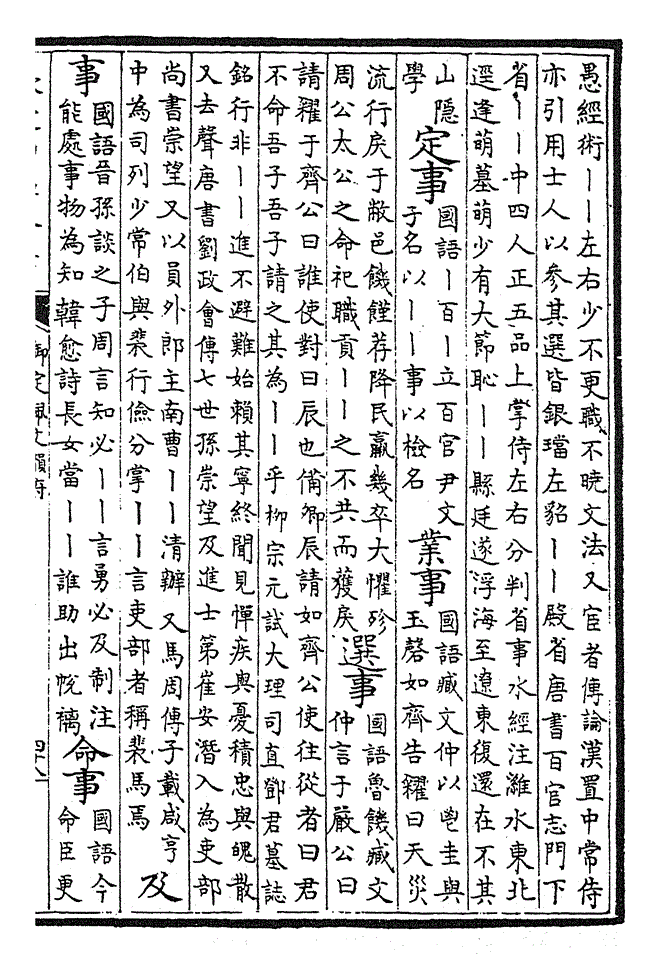 愚經術丨丨左右少不更職不曉文法又宦者傳論漢置中常侍
亦引用士人以參其選皆銀璫左貂丨丨殿省唐書百官志門下
省丨丨中四人正五品上掌侍左右分判省事水經注濰水東北
逕逢萌墓萌少有大節恥丨丨縣廷遂浮海至遼東復還在不其
山隱
學
定事
國語丨百丨立百官尹文
子名以丨丨事以檢名
業事
國語臧文仲以鬯圭與
玉磬如齊告糴曰天災
流行戾于敝邑饑饉荐降民羸幾卒大懼殄
周公太公之命祀職貢丨丨之不共而獲戾
選事
國語魯饑臧文
仲言于嚴公曰
請糴于齊公曰誰使對曰辰也備卿辰請如齊公使往從者曰君
不命吾子吾子請之其為丨丨乎柳宗元試大理司直鄧君墓誌
銘行非丨丨進不避難始賴其寧終聞見憚疾與憂積忠與愧散
又去聲唐書劉政會傳七世孫崇望及進士第崔安潛入為吏部
尚書崇望又以員外郎主南曹丨丨清辦又馬周傳子載咸亨
中為司列少常伯與裴行儉分掌丨丨言吏部者稱裴馬焉
及
事
國語晉孫談之子周言知必丨丨言勇必及制注
能處事物為知韓愈詩長女當丨丨誰助出帨縭
命事
國語今
命臣更
御定佩文韻府
四十八